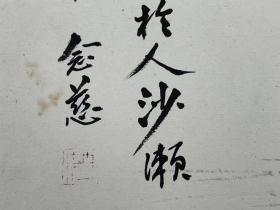 於人沙瀬
念慈